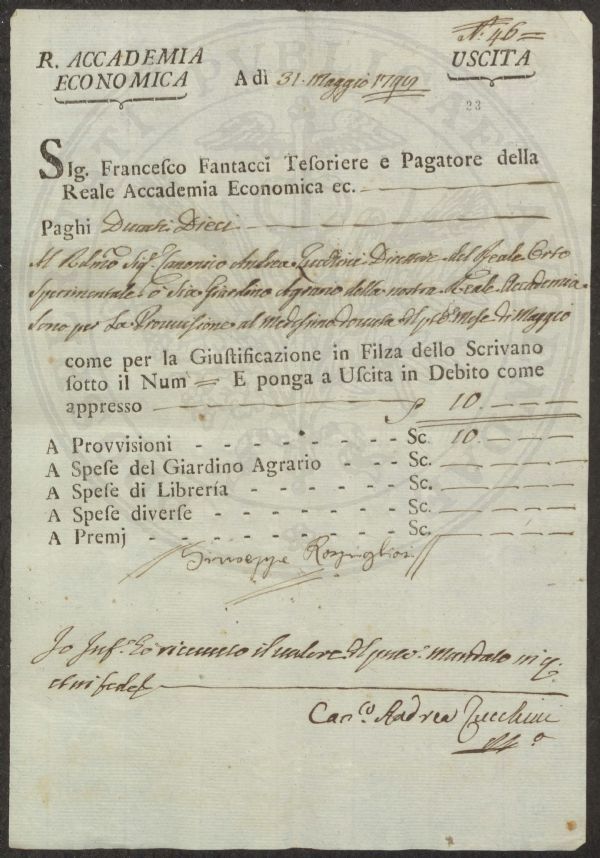 N.° 46 =
R. ACCADEMIA
ECONOMICA
A dì 31. Maggio 1799
USCITA
23
SIg. Franceſco Fantacci Teſoriere e Pagatore della
Reale Accademia Economica ec.
Paghi Ducati Dieci
Al Sig.r Canonico Andrea Zucchini Direttore del Reale Orto
Sperimentale o Sia Giardino Agrario della nostra Reale Accademia
Sono per La Provvisione al Medesimo dovuta mese di Maggio
come per la Giuſtificazione in Filza dello Scrivano
ſotto il Num = E ponga a Uſcita in Debito come
appreſſo 10. — — —
A Provviſioni - - - - - - - - Sc. 10. — — —
A Speſe del Giardino Agrario - - - Sc. — — —
A Speſe di Librería - - - - - - Sc. — — —
A Speſe diverſe - - - - - - - Sc. — — —
A Premj - - - - - - - - - Sc. — — —
Giuseppe Rospigliosi
Io ricevuto il valore Mandato in
Can.co Andrea Zucchini